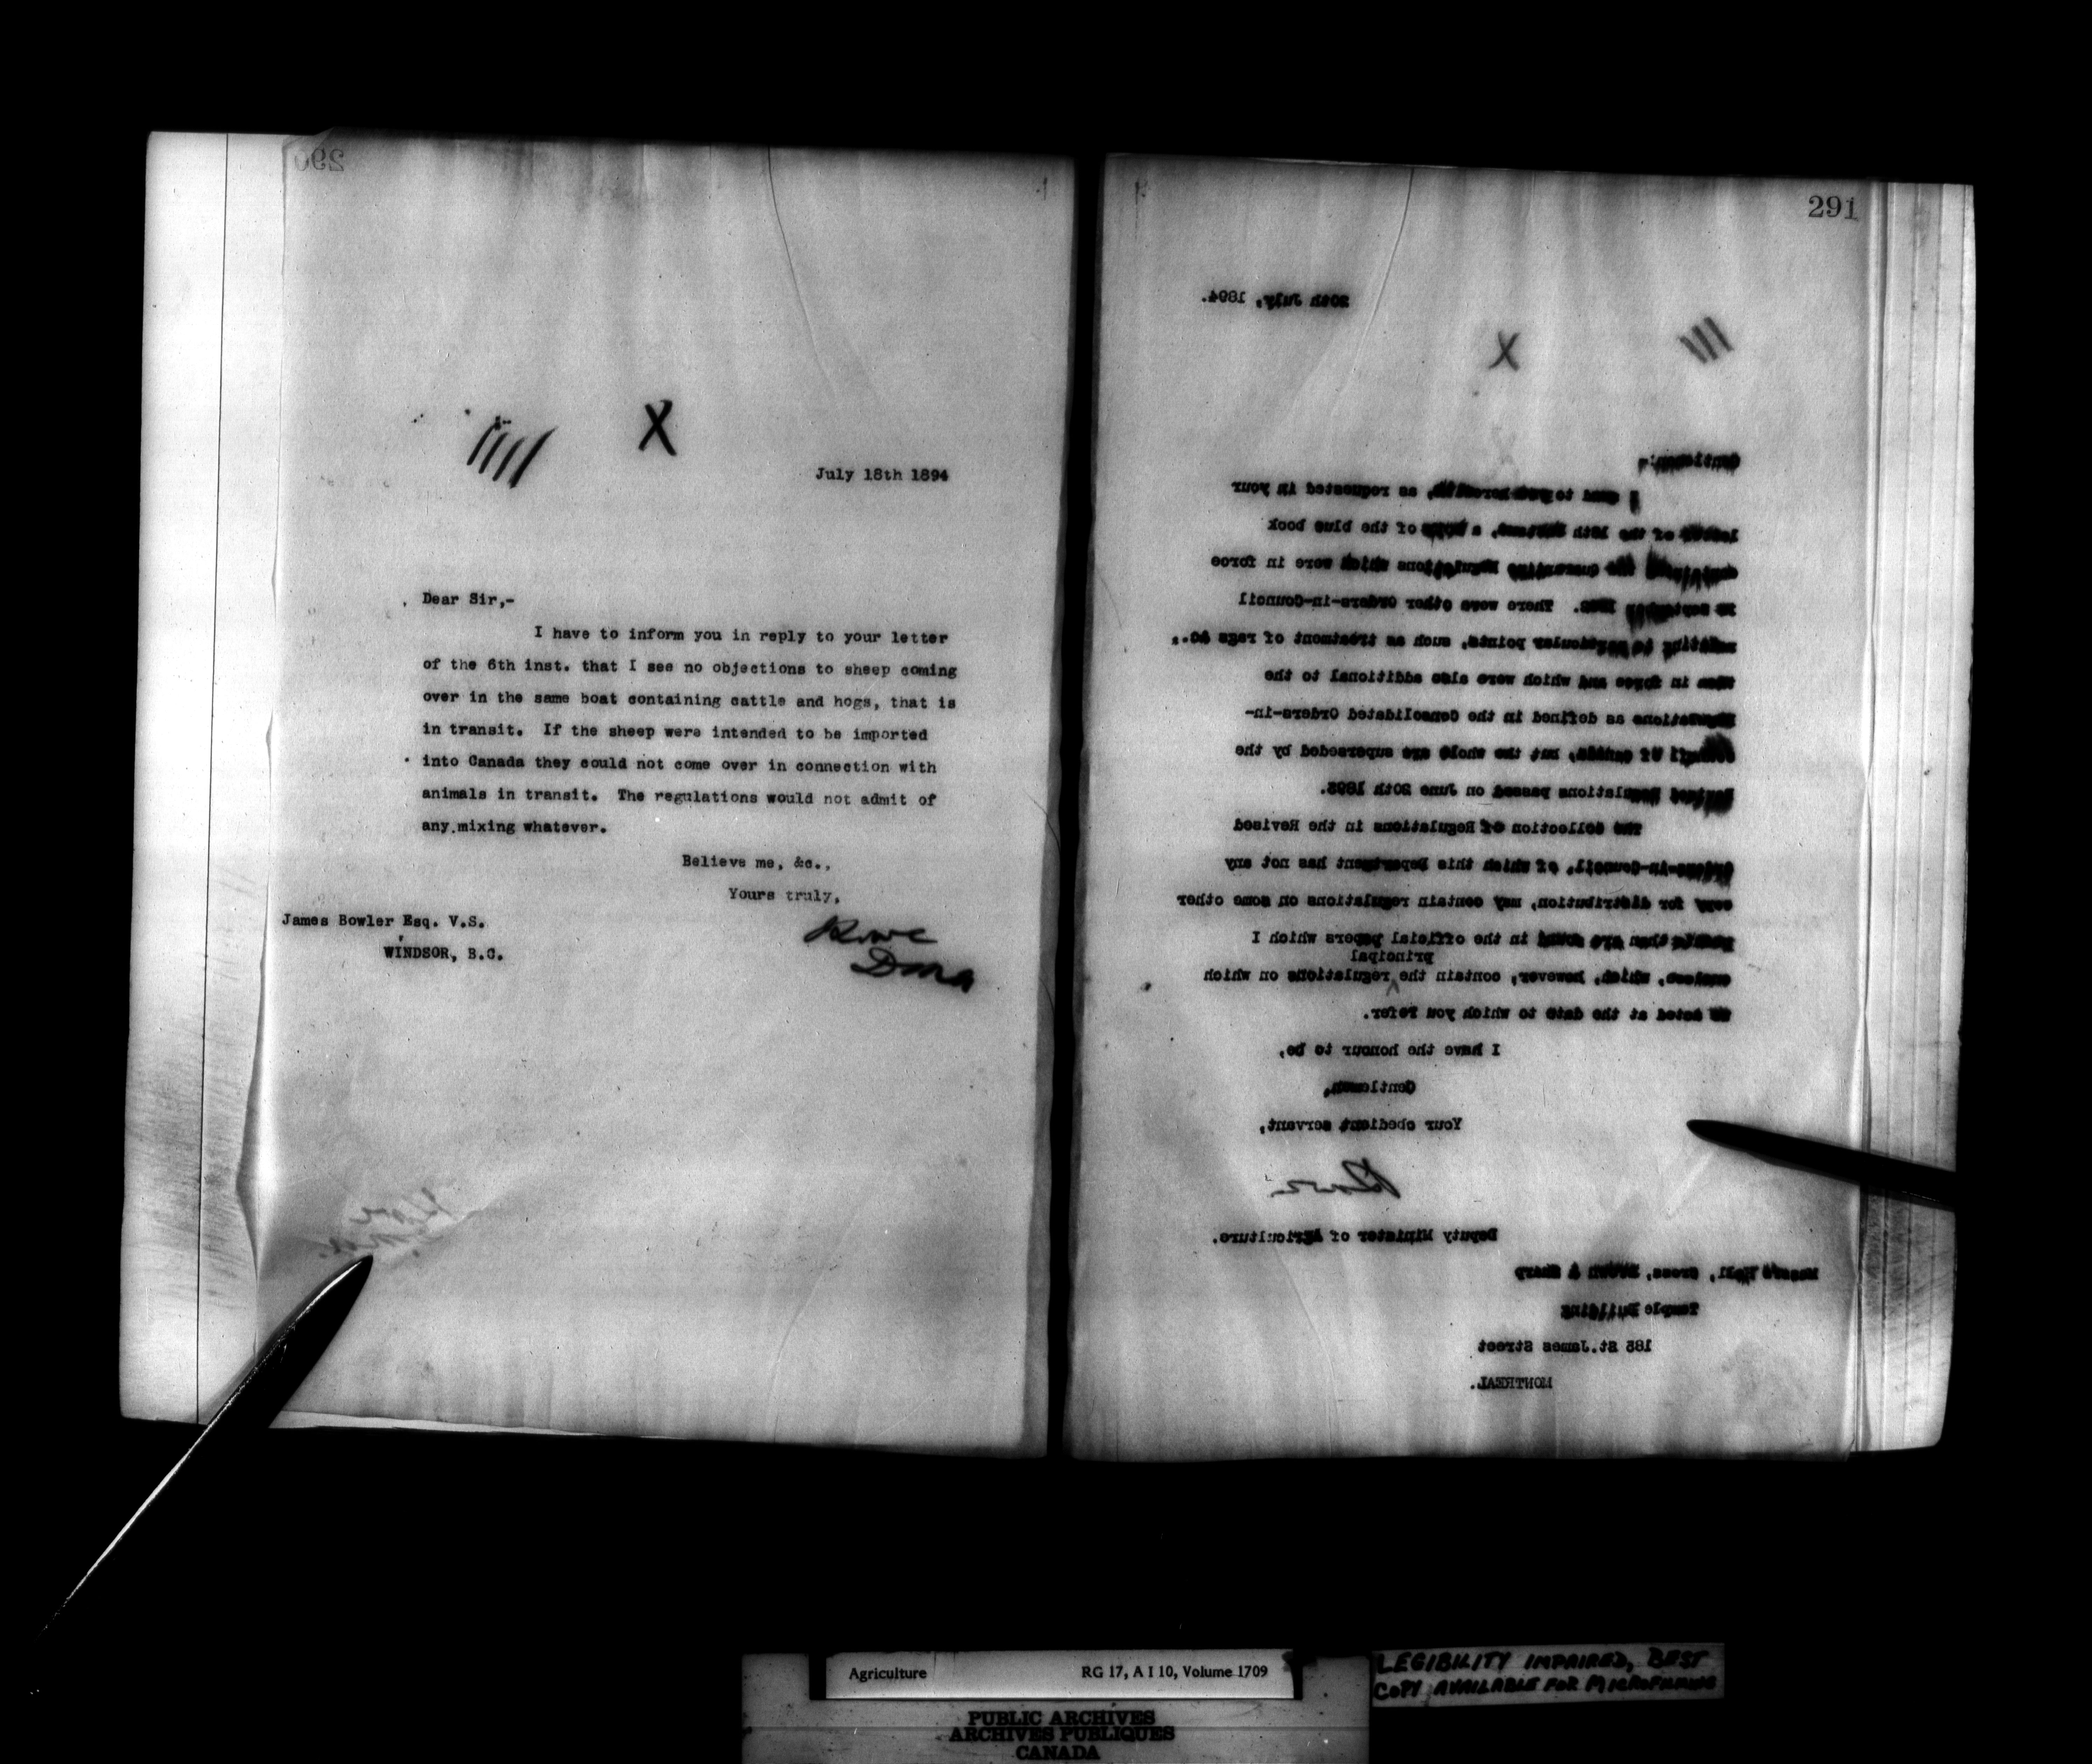 290
July 18th 1894
Dear Sir,-
I have to inform you in reply to your letter
of the 6th inst. that I see no objections to sheep coming
over in the same boat containing cattle and hogs, that is
in transit. If the sheep were intended to be imported
into Canada they could not come over in connection with
animals in transit. The regulations would not admit of
any mixing whatever.
Believe me, &c.,
Yours truly,
James Bowler Esq. V.S.
WINDSOR, B.C.
291
20th July, 1894.
X
Gentlemen:-
to herewith, as requested in your
of the 18th a of the blue book
the quarantine Regulations which were in force
in September There were other Orders-in-Council
to particular points, such as treatment of rags &c.,
in force and which were also additional to the
as defined in the Consolidated Orders-in-
Council of Canada, but the whole are superseded by the
Regulations passed on June 20th 1893.
The collection of Regulations in the Revised
Orders-in-Council, of which this Department has not any
copy for distribution, may contain regulations on some other
points than are found in the official papers which I
principal
enclose, which, however, contain the regulations on which
acted at the date to which you refer.
I have the honour to be,
Gentlemen,
Your obedient servant,
Deputy Minister of Agriculture.
Hall, Cross, Brown & Sharp
Temple Building
185 St.James Street
MONTREAL.
Agriculture RG 17, A I 10, Volume 1709
LEGIBILITY IMPAIRED, BEST
COPY AVAILABLE FOR MICROFILMING
PUBLIC ARCHIVES
ARCHIVES PUBLIQUES
CANADA